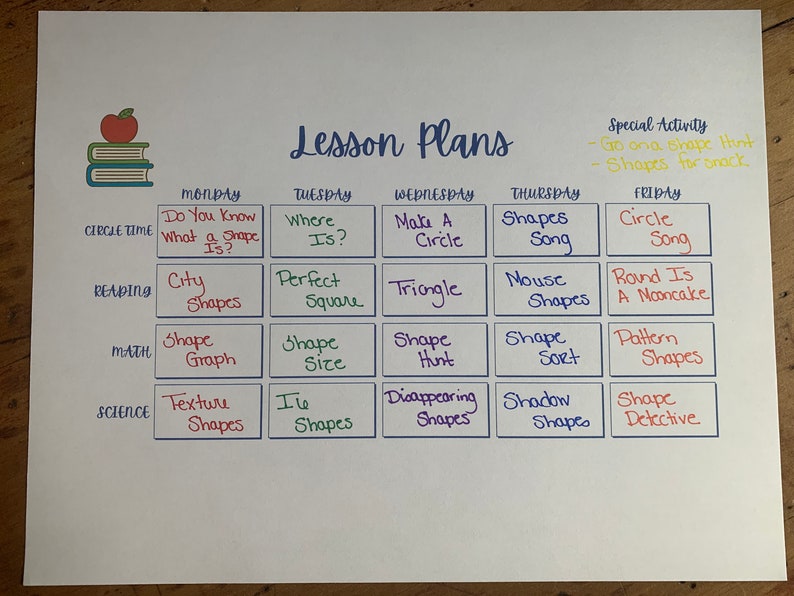 Lesson Plans
Special Activity
- Go on a Shape Hunt
- Shapes for snack.
MONDAY TUESDAY WEDNESDAY THURSDAY FRIDAY
CIRCLE TIME
Do You Know
What a Shape
Is?
Where
Is?
Make A
Circle
Shapes
Song
Circle
Song
READING
City
Shapes
Perfect
Square
Triangle
Mouse
Shapes
Round Is
A Mooncake
MATH
Shape
Graph
Shape
Size
Shape
Hunt
Shape
Sort
Pattern
Shapes
SCIENCE
Texture
Shapes
Shapes
Disappearing
Shapes
Shadow
Shapes
Shape
Detective